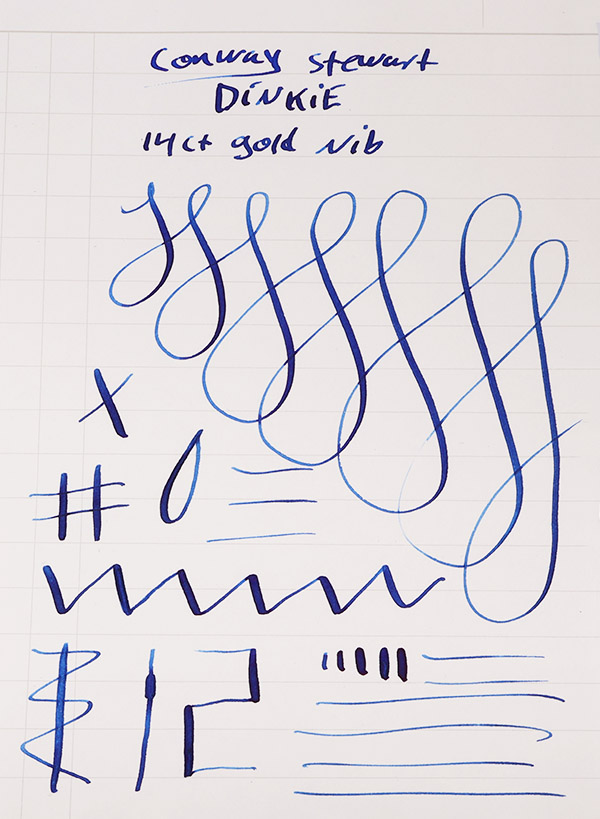 Conway Stewart
DiNKiE
14ct gold Nib